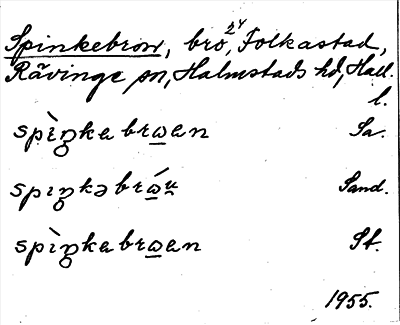 Spinkebrow, bro 24, Folkastad,
Rävinge sn, Halmstads hd, Hall.
l.
spìŋkabrωan Sa.
spıŋkəbrώu̯ Sand.
spìŋkabrωan St.
1955.